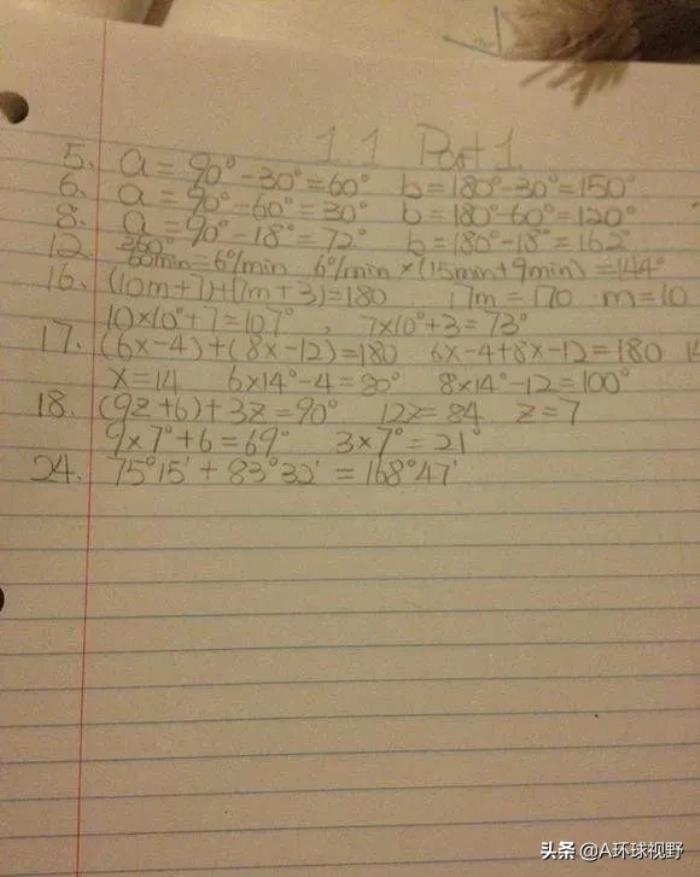 1.1 Part 1
5. a = 90° - 30° = 60° b = 180° - 30° = 150°
6. a = 90° - 60° = 30° b = 180° - 60° = 120°
8. a = 90° - 18° = 72° b = 180° - 18° = 162°
12. 360°/60min = 6°/min 6°/min × (15min + 9min) = 144°
16. (10m + 7) + (7m + 3) = 180 17m = 170 m = 10
10×10° + 7 = 107°, 7×10° + 3 = 73°
17. (6x - 4) + (8x - 12) = 180 6x - 4 + 8x - 12 = 180
x = 14 6×14° - 4 = 80° 8×14° - 12 = 100°
18. (9z + 6) + 3z = 90° 12z = 84 z = 7
9×7° + 6 = 69° 3×7° = 21°
24. 75°15' + 83°32' = 168°47'
头条 @A环球视野